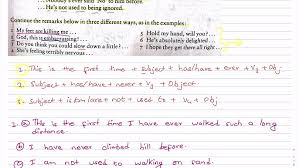 Nobody's ever said 'No' to him before.
... He's not used to being ignored.
Continue the remarks below in three different ways, as in the examples:
1 My feet are killing me ...
2 God, this is embarrassing! ...
3 Do you think you could slow down a little? ...
4 She's feeling terribly nervous ...
5 Hold my hand, will you? ...
6 He's absolutely delighted ...
7 I hope they get there all right ...
1. This is the first time + subject + has/have + ever + V3 + Obj
2. Subject + has/have + never + V3 + Object
3. Subject + is/am/are + not + used to + V4 + Obj.
1. a) This is the first time I have ever walked such a long
distance.
b) I have never climbed hill before.
c) I am not used to walking on sand.